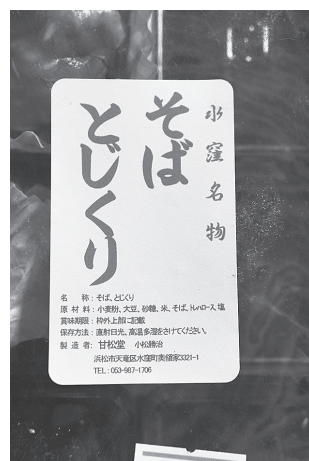 水窪名物
そば
とじくり
名　　称：そば、とじくり
原 材 料：小麦粉、大豆、砂糖、米、そば、トレハロース、塩
賞味期限：枠外上部に記載
保存方法：直射日光、高温多湿をさけてください。
製 造 者：甘松堂　小松勝治
浜松市天竜区水窪町奥領家3321-1
TEL：053-987-1706